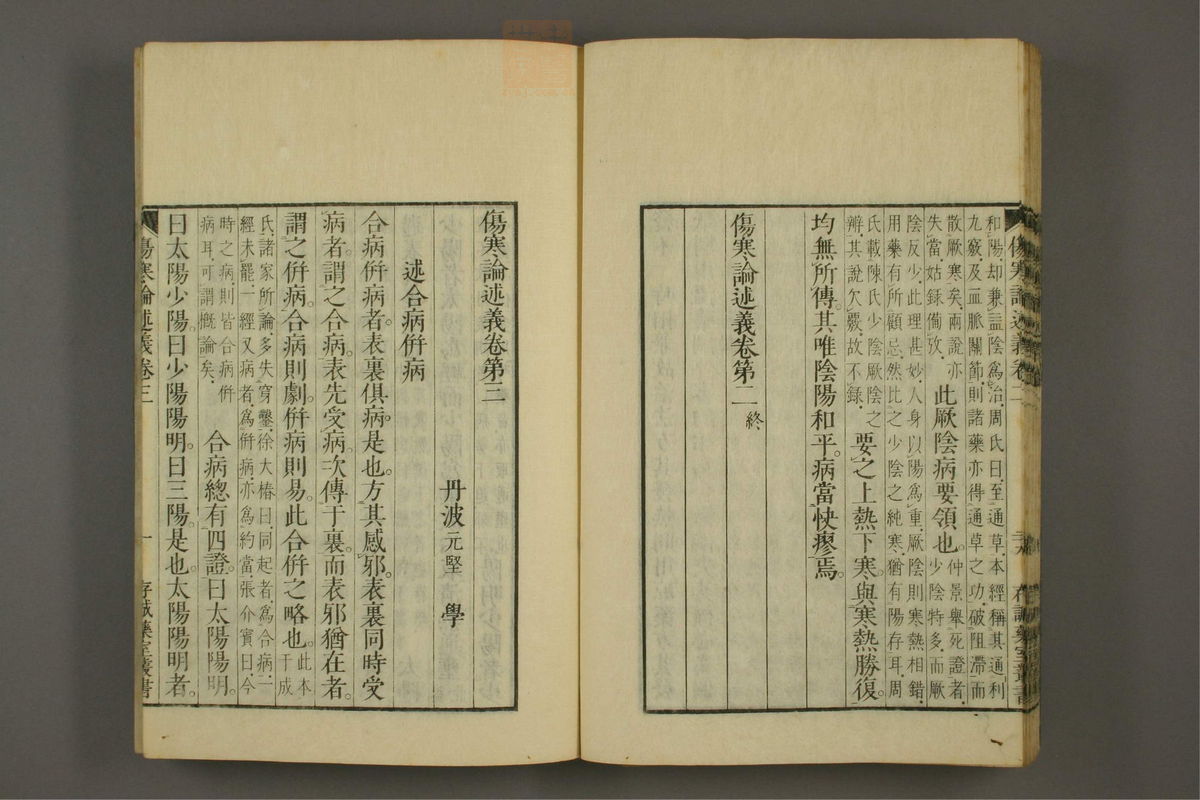 和陽却兼益陰爲治周氏曰至通草本經稱其通利
九竅及血脈關節則諸藥亦得通草之功破阻滯而
散厥寒矣兩說亦
失當姑錄備攷
此厥陰病要領也。
仲景舉死證者
少陰特多而厥
陰反少此理甚妙人身以陽爲重厥陰則寒熱相錯
用藥有所顧忌然比之少陰之純寒猶有陽存耳周
氏載陳氏少陰厥陰之
辨其說欠覈故不錄
要之上熱下寒與寒熱勝復
均無所傳其唯陰陽和平病當快瘳焉
傷寒論述義卷第二終
傷寒論述義卷第三
丹波元堅 學
述合病併病
合病併病者表裏俱病是也方其感邪表裏同時受
病者謂之合病表先受病次傳于裏而表邪猶在者
謂之併病合病則劇併病則易此合併之略也
此本
于成
氏諸家所論多失穿鑿徐大椿曰同起者爲合病一
經未罷一經又病者爲併病亦爲約當張介賓曰今
時之病則皆合病併
病耳可謂概論矣
合病總有四證曰太陽陽明
曰太陽少陽曰少陽陽明曰三陽是也太陽陽明者
傷寒論述義卷三
一
存誠藥室叢書